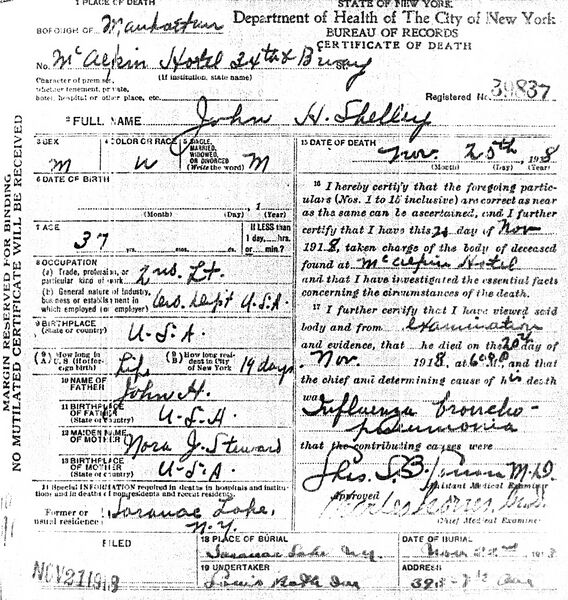 1 PLACE OF DEATH
STATE OF NEW YORK
BOROUGH OF Manhattan
Department of Health of The City of New York
BUREAU OF RECORDS
CERTIFICATE OF DEATH
No. McAlpin Hotel 34th & Bway
Character of premises, (If institution, state name)
whether tenement, private,
hotel, hospital or other place, etc.
Registered No. 39837
2 FULL NAME John H. Shelley
3 SEX
M
4 COLOR OR RACE
W
5 SINGLE,
MARRIED,
WIDOWED,
OR DIVORCED
(Write the word) M
6 DATE OF BIRTH
(Month) (Day) (Year)
7 AGE
37 yrs. mos. ds.
If LESS than
1 day, hrs.
or min.?
8 OCCUPATION
(a) Trade, profession, or
particular kind of work 2nd Lt.
(b) General nature of industry,
business or establishment in
which employed (or employer) Dept U.S.A.
9 BIRTHPLACE
(State or country) U.S.A.
(A) How long in
U. S. (if of foreign birth) Life
(B) How long resident in City
of New York 19 days
10 NAME OF
FATHER John H.
11 BIRTHPLACE
OF FATHER
(State or country) U.S.A.
12 MAIDEN NAME
OF MOTHER Nora J. Steward
13 BIRTHPLACE
OF MOTHER
(State or country) U.S.A.
14 Special INFORMATION required in deaths in hospitals and institutions
and in deaths of nonresidents and recent residents.
Former or
usual residence Saranac Lake,
N.Y.
15 DATE OF DEATH
Nov. 20th, 1918
(Month) (Day) (Year)
16 I hereby certify that the foregoing particulars
(Nos. 1 to 15 inclusive) are correct as near
as the same can be ascertained, and I further
certify that I have this 20 day of Nov
1918, taken charge of the body of deceased
found at McAlpin Hotel
and that I have investigated the essential facts
concerning the circumstances of the death.
17 I further certify that I have viewed said
body and from examination
and evidence, that he died on the 20th day of
Nov. 1918, at M., and that
the chief and determining cause of his death
was
Influenza broncho-
pneumonia
that the contributing causes were
M.D.
Assistant Medical Examiner
Approved Charles Norris
Chief Medical Examiner
FILED
NOV 21 1918
18 PLACE OF BURIAL
Saranac Lake N.Y.
DATE OF BURIAL
Nov 1918
19 UNDERTAKER
ADDRESS
Ave
MARGIN RESERVED FOR BINDING
NO MUTILATED CERTIFICATE WILL BE RECEIVED